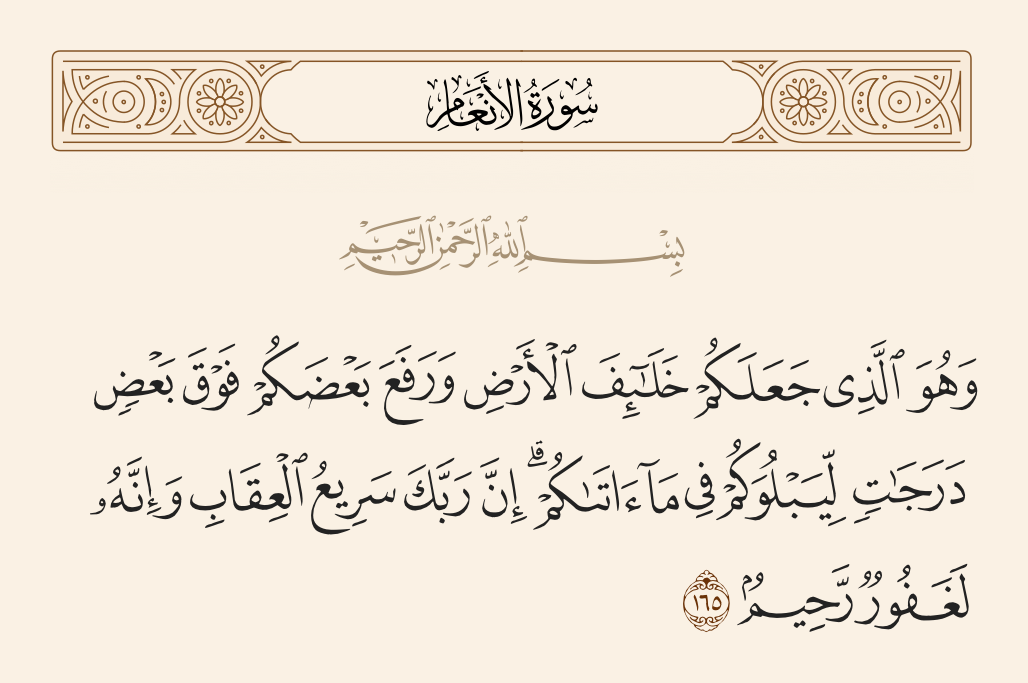 سُورَةُ الأَنْعَامِ
بِسْمِ ٱللَّهِ ٱلرَّحْمَٰنِ ٱلرَّحِيمِ
وَهُوَ ٱلَّذِى جَعَلَكُمْ خَلَٰٓئِفَ ٱلْأَرْضِ وَرَفَعَ بَعْضَكُمْ فَوْقَ بَعْضٍ
دَرَجَٰتٍ لِّيَبْلُوَكُمْ فِى مَآ ءَاتَىٰكُمْ ۗ إِنَّ رَبَّكَ سَرِيعُ ٱلْعِقَابِ وَإِنَّهُۥ
لَغَفُورٌ رَّحِيمٌۢ ١٦٥